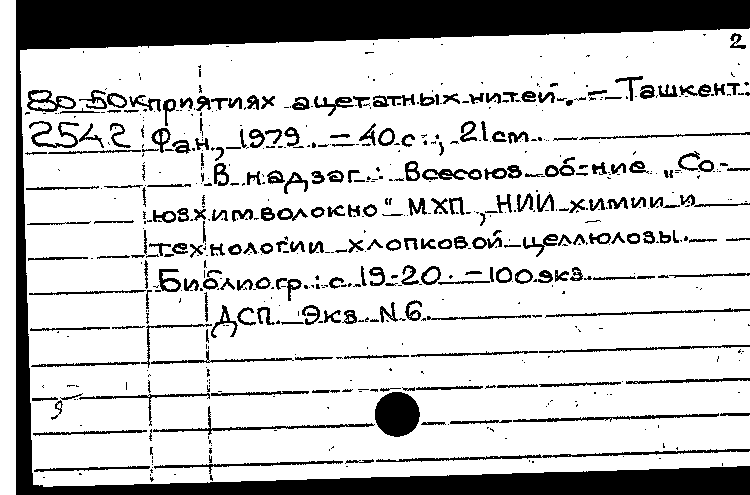 2
80-50к приятиях ацетатных нитей. - Ташкент:
2542 Фан, 1979. - 40 с.; 21 см.
В надзаг.: Всесоюз. об-ние „Со-
юзхимволокно" МХП, НИИ химии и
технологии хлопковой целлюлозы.
Библиогр.: с. 19-20. - 100 экз.
ДСП. Экз. N 6.